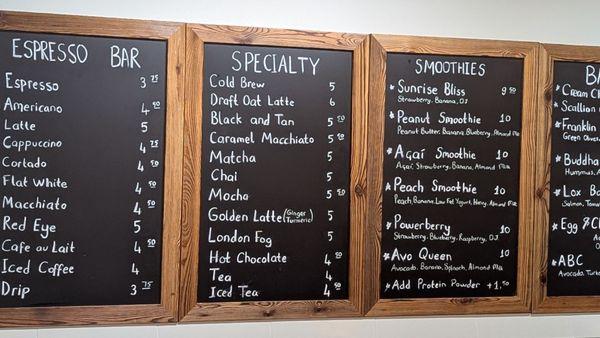 ESPRESSO BAR
Espresso 3 75
Americano 4
Latte 5
Cappuccino 4
Cortado 4
Flat White 4 50
Macchiato 4 50
Red Eye 5
Cafe au Lait 4 50
Iced Coffee 4
Drip 3 75
SPECIALTY
Cold Brew 5
Draft Oat Latte 6
Black and Tan 5
Caramel Macchiato 5
Matcha 5
Chai 5
Mocha 5
Golden Latte (Ginger Turmeric) 5
London Fog 5
Hot Chocolate 4
Tea 4
Iced Tea 4
SMOOTHIES
* Sunrise Bliss 9 50
Strawberry, Banana, OJ
* Peanut Smoothie 10
Peanut Butter, Banana, Blueberry, Almond
* Açaí Smoothie 10
Açaí, Strawberry, Banana, Almond
* Peach Smoothie 10
Peach, Banana, Low Fat Yogurt, Honey, Almond
* Powerberry 10
Strawberry, Blueberry, Raspberry, O.J.
* Avo Queen 10
Avocado, Banana, Spinach, Almond
* Add Protein Powder +1.
BA
* Cream Ch
* Scallion
* Franklin
Green Olive
* Buddha
Hummus, A
* Lox Ba
Salmon, Toma
* Egg & Ch
* ABC
Avocado, Turk